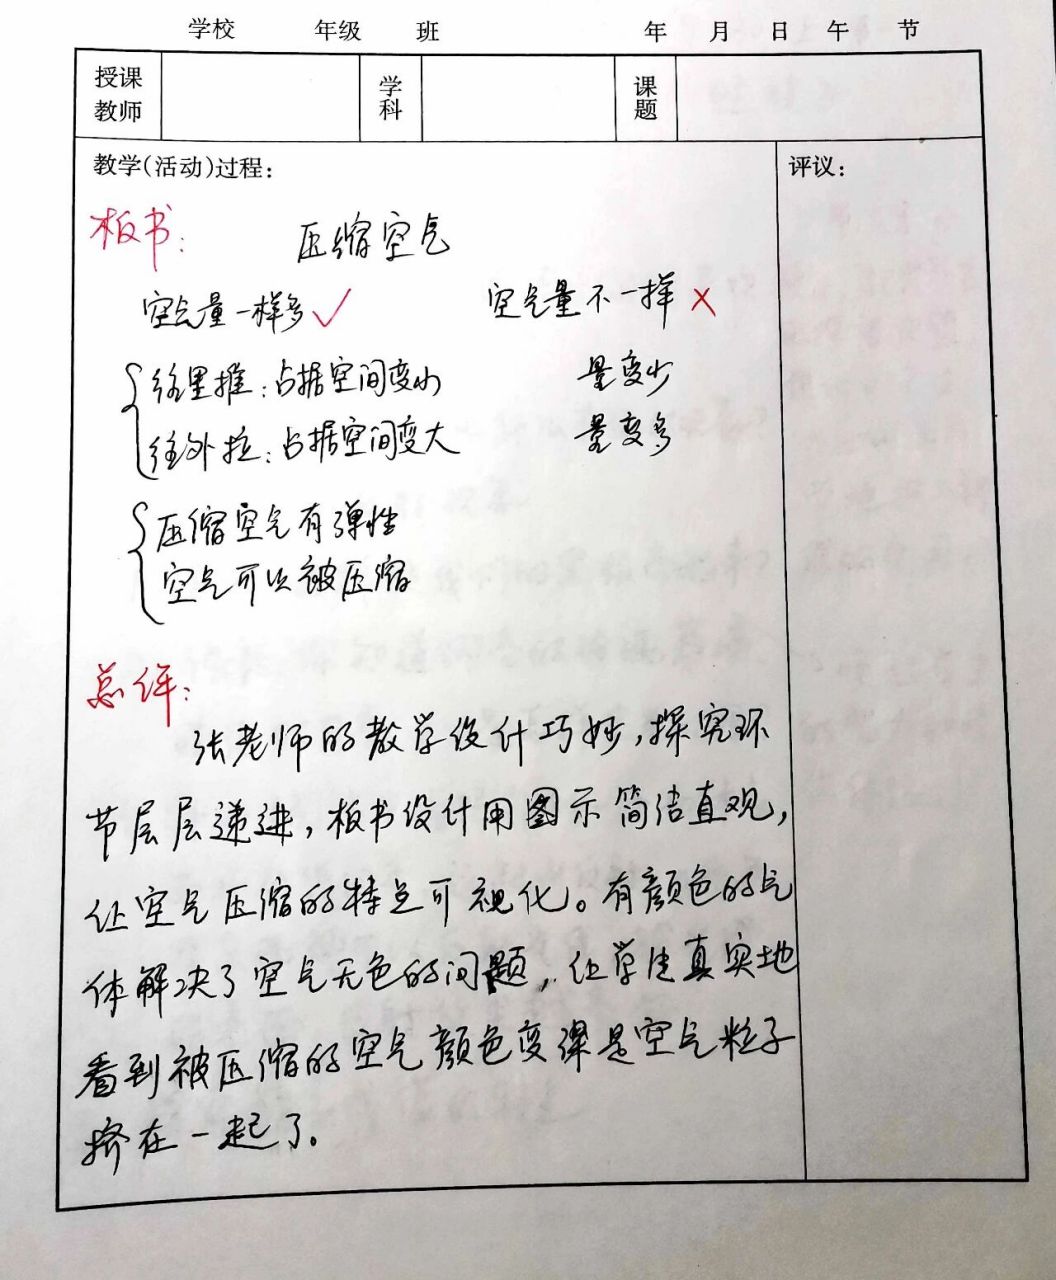 学校 年级 班 年 月 日 午 节
授课教师 学科 课题
教学(活动)过程: 评议:
板书: 压缩空气
空气量一样多✓ 空气量不一样×
往里推:占据空间变小 量变少
往外拉:占据空间变大 量变多
压缩空气有弹性
空气可以被压缩
总评:
张老师的教学设计巧妙,探究环
节层层递进,板书设计用图示简洁直观,
让空气压缩的特点可视化。有颜色的气
体解决了空气无色的问题,让学生真实地
看到被压缩的空气颜色变深是空气粒子
挤在一起了。